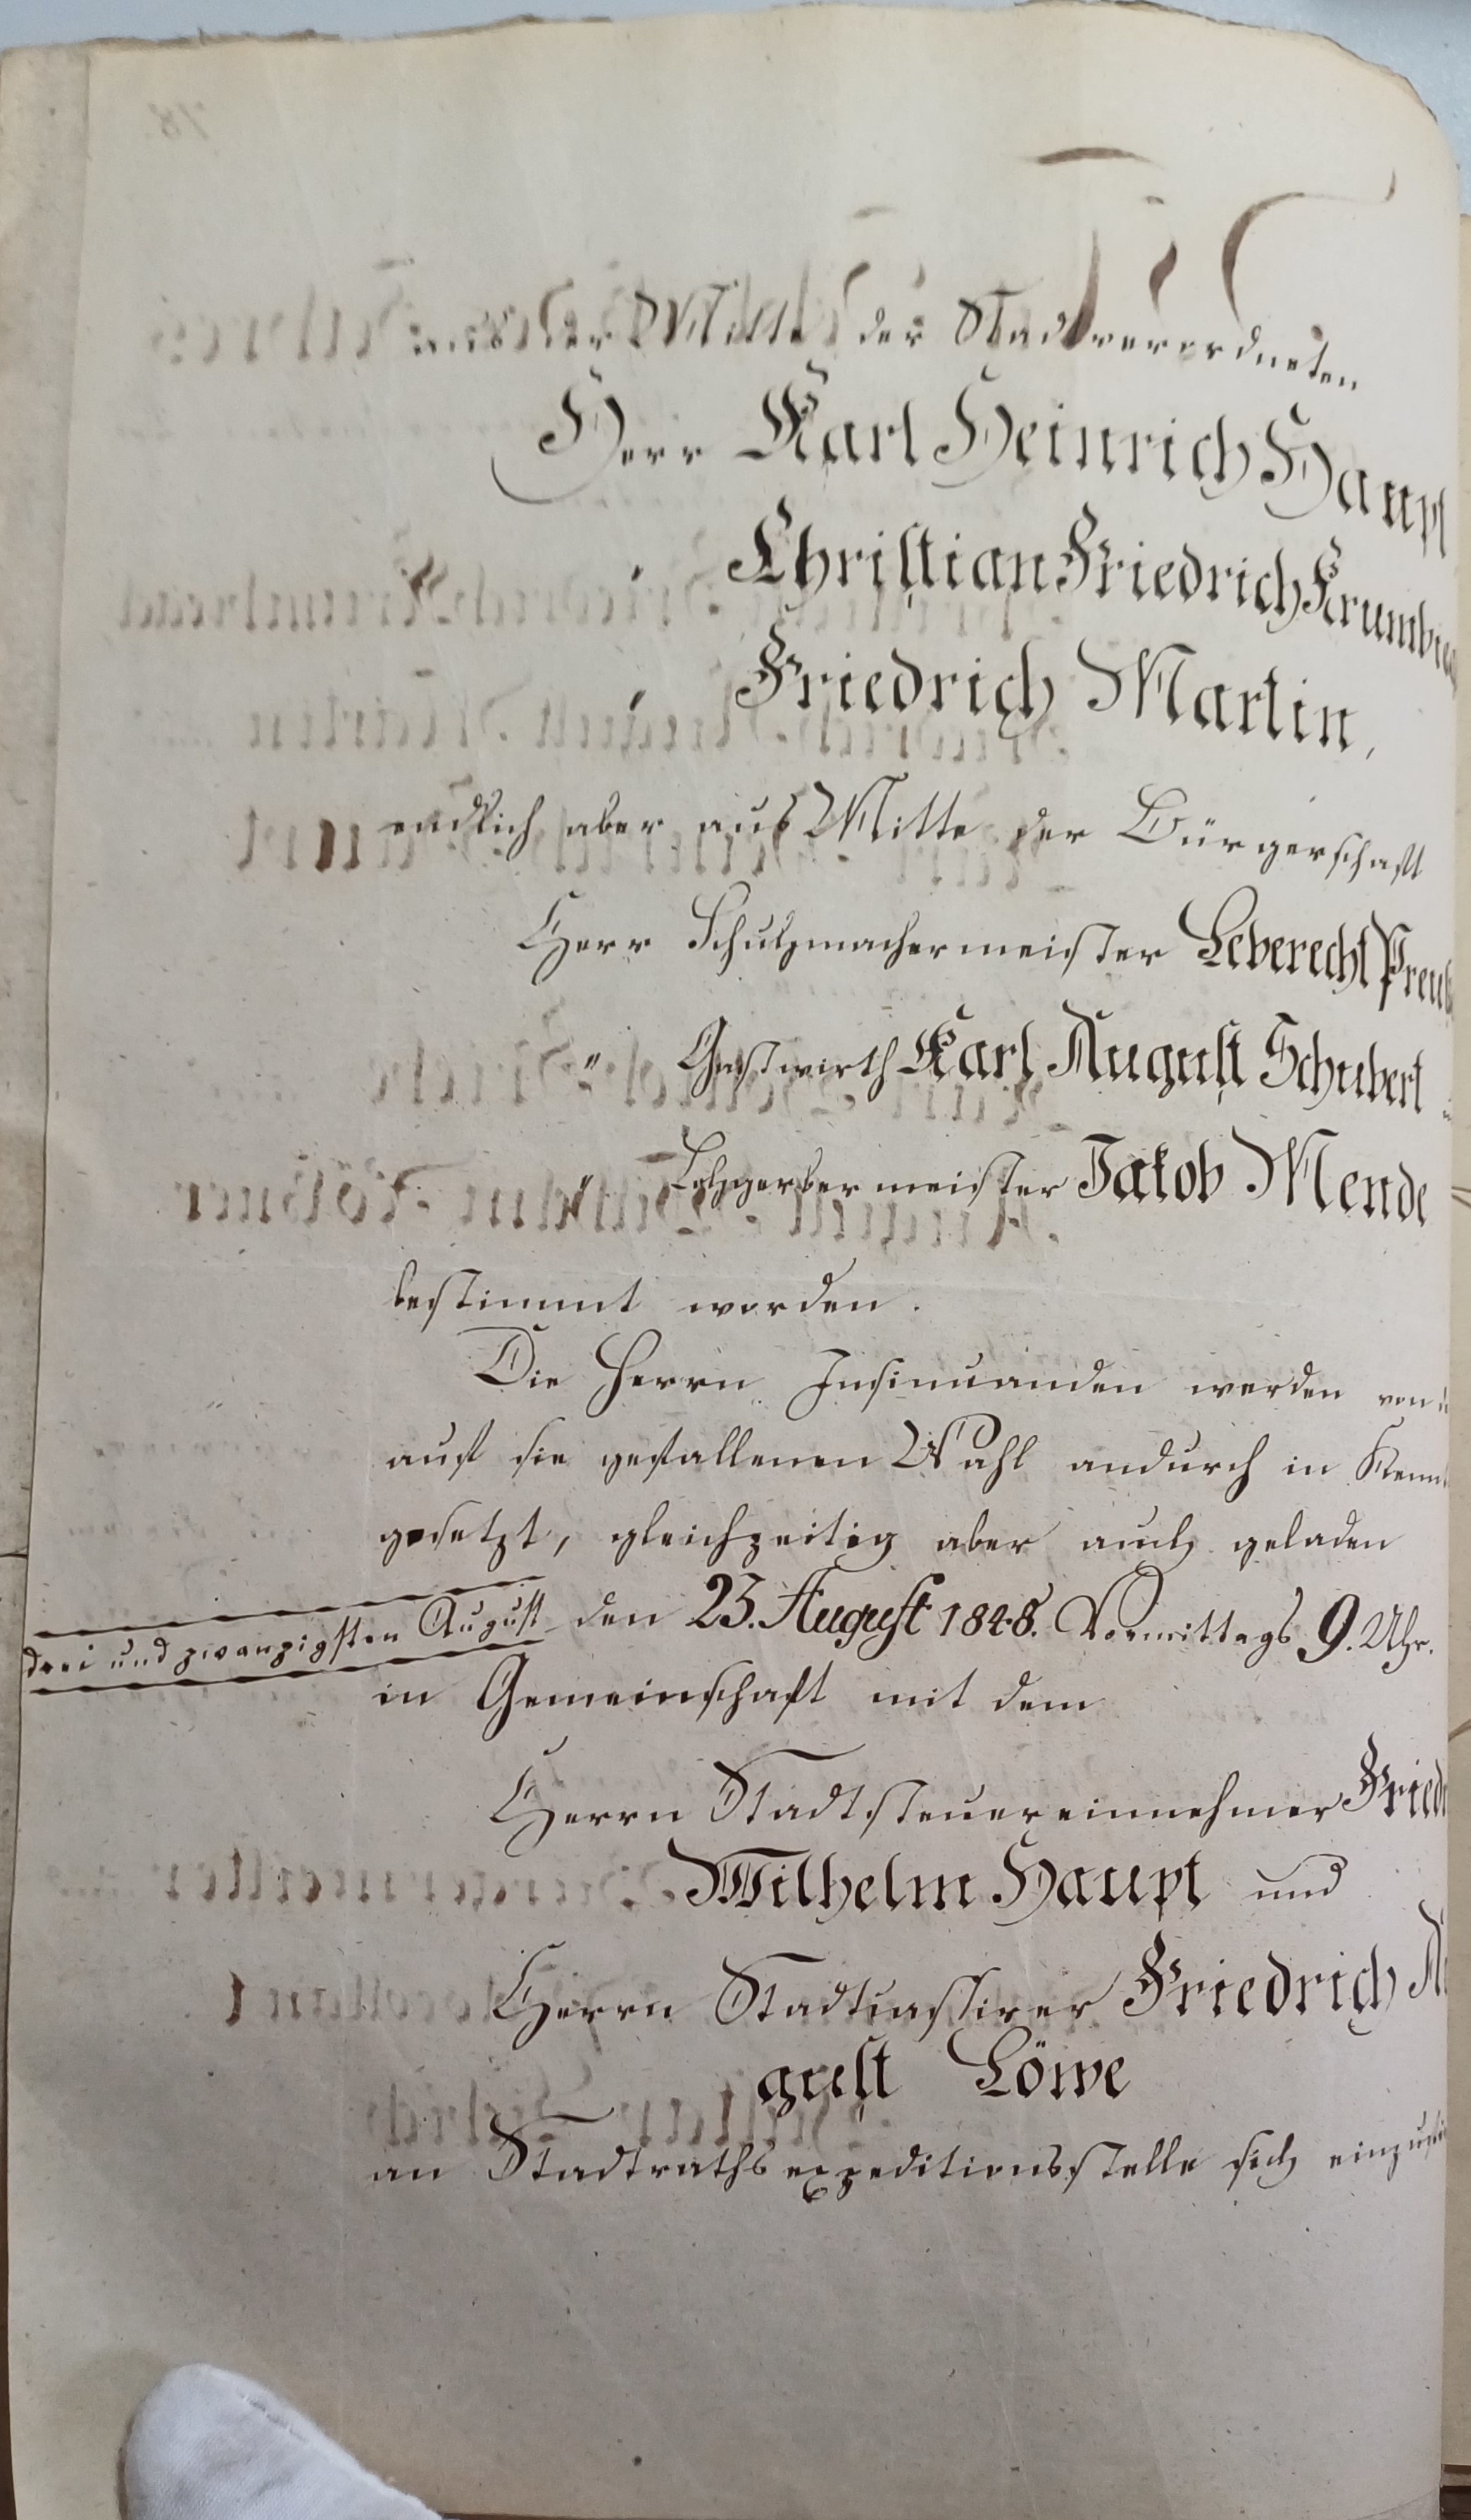 aus der Mitte der Stadtverordneten
Herr Karl Heinrich Haupt
" Christian Friedrich
" Friedrich Martin,
endlich aber aus Mitte der Bürgerschaft
Herr Schuhmachermeister Leberecht
" Gastwirth Karl August Schubert
" Lohgerbermeister Jakob Mende
bestimmt worden.
Die Herrn Insinuanden werden von
auf sie gefallenen Wahl andurch in
gesetzt, gleichzeitig aber auch geladen
drei und zwanzigsten August den 23. August 1848. Vormittags 9. Uhr.
in Gemeinschaft mit dem
Herrn Stadtsteuereinnehmer
Wilhelm Haupt und
Herrn Stadtcassirer Friedrich
gust Löwe
an Stadtrathsexpeditionsstelle sich